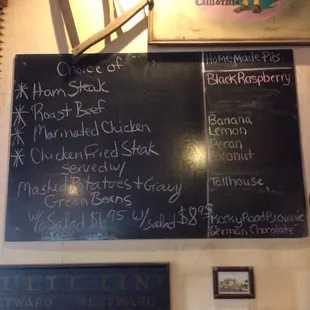 Choice of
Ham Steak
Roast Beef
Marinated Chicken
Chicken Fried Steak
served w/
Mashed Potatoes + Gravy
Green Beans
w/o Salad $6.95 w/salad $8.95
HomeMade Pies
Black Raspberry
Banana
Lemon
Pecan
Coconut
Tollhouse
Rocky Road Brownie
German Chocolate
STWARD WESTWARD